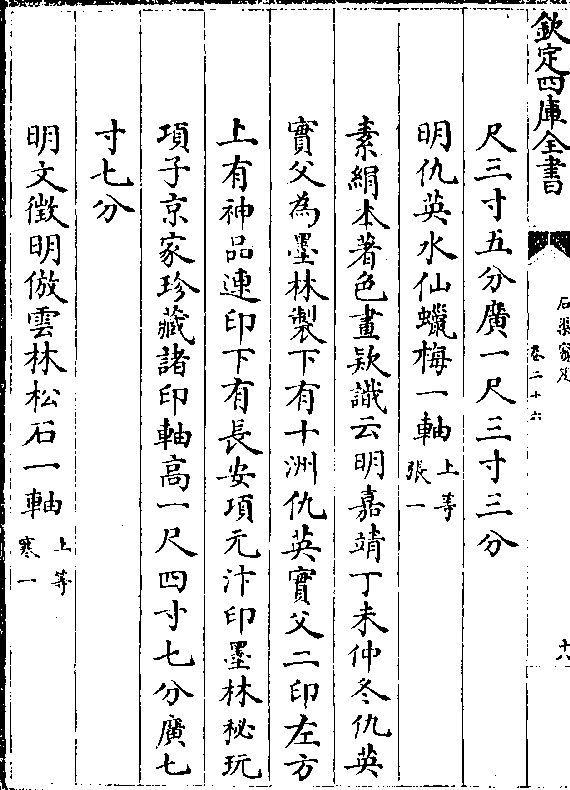 欽定四庫全書
石渠寳笈
卷二十六
十六
尺三寸五分廣一尺三寸三分
明仇英水仙蠟梅一軸上等張一
素絹本著色畫欵識云明嘉靖丁未仲冬仇英
實父為墨林製下有十洲仇英實父二印左方
上有神品連印下有長安項元汴印墨林秘玩
項子京家珍藏諸印軸高一尺四寸七分廣七
寸七分
明文徵明倣雲林松石一軸上等寒一